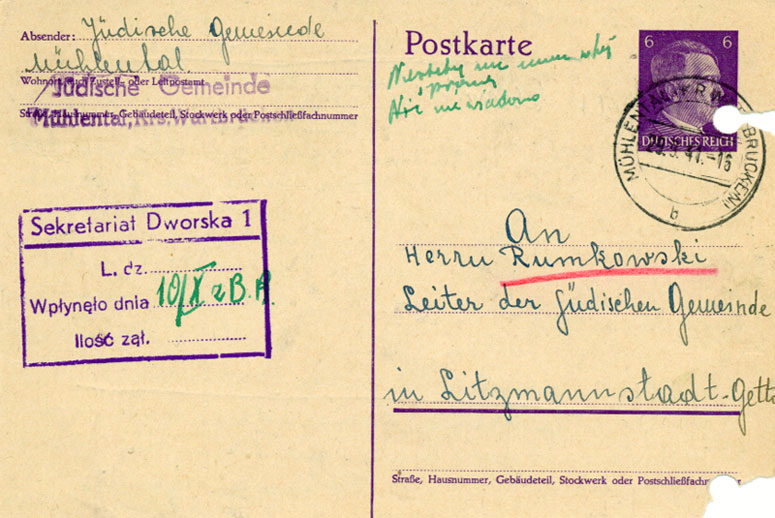 Absender: Jüdische Gemeinde
Mühlental.
Wohnort, auch Zustell- oder Leitpostamt
Jüdische Gemeinde
Straße, Hausnummer, Gebäudeteil, Stockwerk oder Postschließfachnummer
Mühlental, Krs. Warthbrücken
Postkarte
Nie wiadomo
6 6
DEUTSCHES REICH
MÜHLENTAL WARTHBRÜCKEN
41.-16
b
Sekretariat Dworska 1
L. dz.
Wpłynęło dnia 10/X z B. P.
Ilość zał.
An
Herrn Rumkowski
Leiter der Jüdischen Gemeinde
in Litzmannstadt-Getto
Straße, Hausnummer, Gebäudeteil, Stockwerk oder Postschließfachnummer